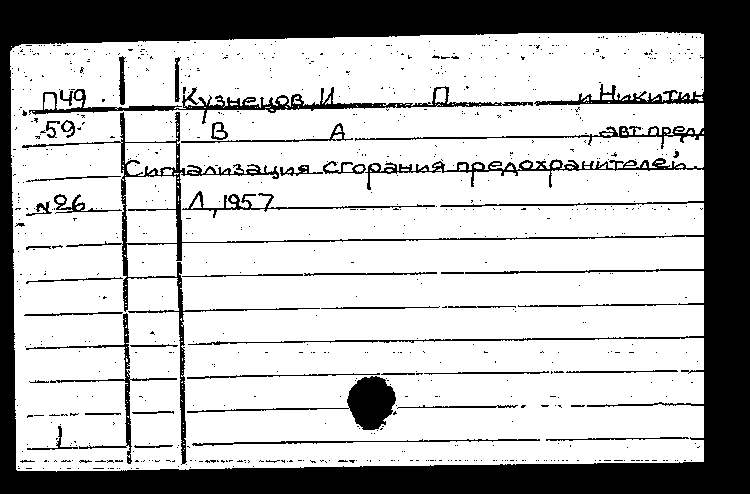 П49 Кузнецов, И П и Никитин
59 В А , авт. предл
Сигнализация сгорания предохранителей.
№26 Л, 1957
1